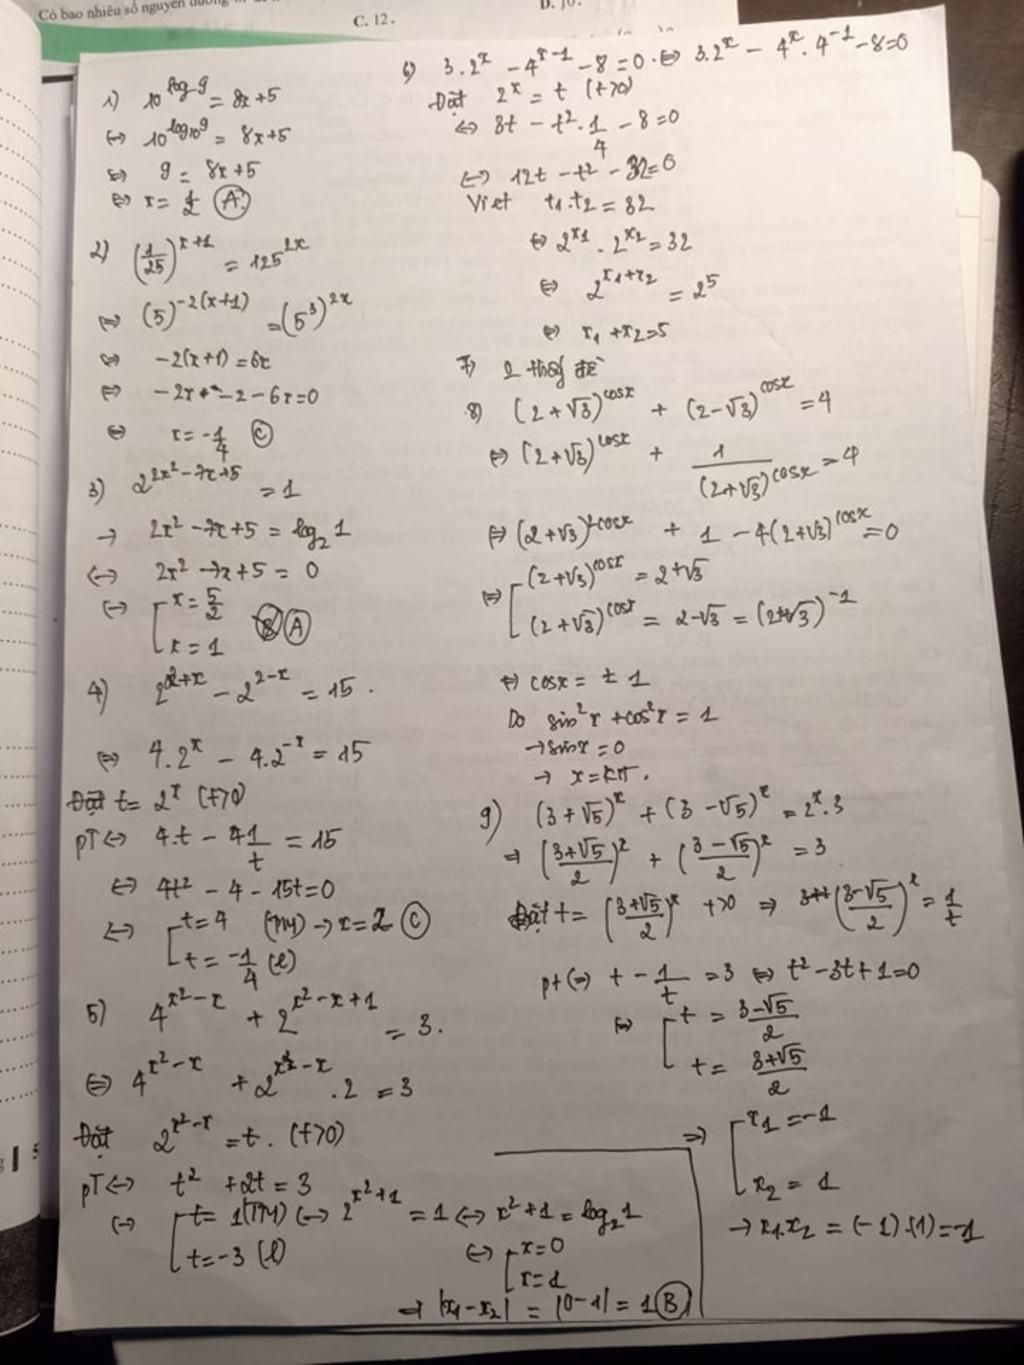 Có bao nhiêu số nguyên dương
C. 12.
1) 10^{log 9} = 8x+5
⇔ 10^{log_{10} 9} = 8x+5
⇔ 9 = 8x+5
⇔ x = 1/2 Ⓐ
2) (1/25)^{x+1} = 125^{2x}
⇔ (5)^{-2(x+1)} = (5^3)^{2x}
⇔ -2(x+1) = 6x
⇔ -2x - 2 - 6x = 0
⇔ x = -1/4 Ⓒ
3) 2^{2x^2-7x+5} = 1
→ 2x^2 - 7x + 5 = log_2 1
⇔ 2x^2 - 7x + 5 = 0
⇔ [ x = 5/2
x = 1 Ⓐ
4) 2^{2+x} - 2^{2-x} = 15.
⇔ 4.2^x - 4.2^{-x} = 15
Đặt t = 2^x (t>0)
pT ⇔ 4.t - 4 1/t = 15
⇔ 4t^2 - 4 - 15t = 0
⇔ [ t = 4 (TM) → x = 2 Ⓒ
t = -1/4 (l)
5) 4^{x^2-x} + 2^{x^2-x+1} = 3.
⇔ 4^{x^2-x} + 2^{x^2-x} . 2 = 3
Đặt 2^{x^2-x} = t. (t>0)
pT ⇔ t^2 + 2t = 3
⇔ [ t = 1 (TM) ⇔ 2^{x^2+1} = 1 ⇔ x^2+1 = log_2 1
t = -3 (l) ⇔ [ x = 0
x = 1
⇒ |x_1 - x_2| = |0-1| = 1 Ⓑ
6) 3.2^x - 4^{x-1} - 8 = 0 . ⇔ 3.2^x - 4^x . 4^{-1} - 8 = 0
Đặt 2^x = t (t>0)
⇔ 3t - t^2 . 1/4 - 8 = 0
⇔ 12t - t^2 - 32 = 0
Viet t_1.t_2 = 32
⇔ 2^{x_1} . 2^{x_2} = 32
⇔ 2^{x_1+x_2} = 2^5
⇔ x_1 + x_2 = 5
7)
8) (2+√3)^{cosx} + (2-√3)^{cosx} = 4
⇔ (2+√3)^{cosx} + 1/(2+√3)^{cosx} = 4
⇔ (2+√3)^{2cosx} + 1 - 4(2+√3)^{cosx} = 0
⇔ [ (2+√3)^{cosx} = 2+√3
(2+√3)^{cosx} = 2-√3 = (2+√3)^{-1}
⇔ cosx = ± 1
Do sin^2 x + cos^2 x = 1
→ sinx = 0
→ x = kπ.
9) (3+√5)^x + (3-√5)^x = 2^x.3
⇒ ((3+√5)/2)^x + ((3-√5)/2)^x = 3
Đặt t = ((3+√5)/2)^x t>0 ⇒ ((3-√5)/2)^x = 1/t
pt ⇔ t - 1/t = 3 ⇔ t^2 - 3t + 1 = 0
⇔ [ t = (3-√5)/2
t = (3+√5)/2
⇒ [ x_1 = -1
x_2 = 1
→ x_1.x_2 = (-1).(1) = -1